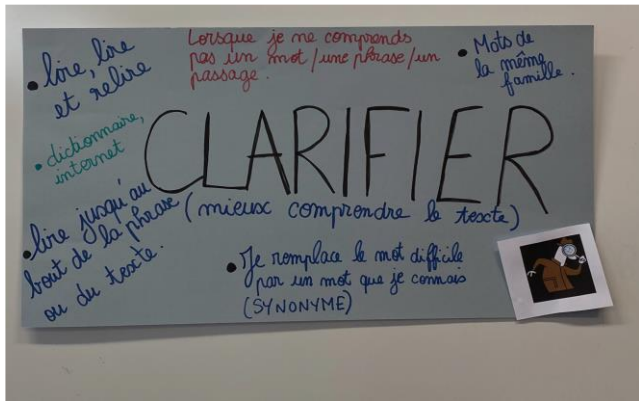 Lorsque je ne comprends
pas un mot / une phrase / un
passage.
• lire, lire
et relire
• Mots de
la même
famille.
• dictionnaire,
internet
CLARIFIER
(mieux comprendre le texte)
• lire jusqu'au
bout de la phrase
ou du texte.
• Je remplace le mot difficile
par un mot que je connais
(SYNONYME)